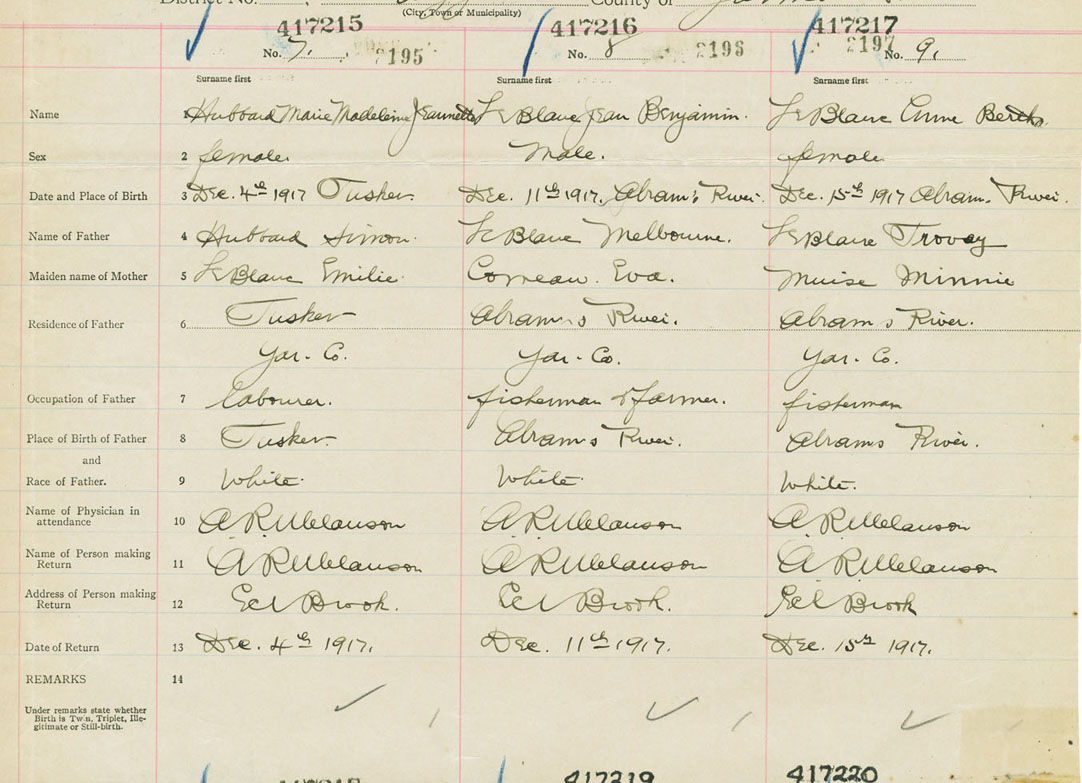 District No. County of
(City, Town or Municipality)
417215 417216 417217
No. 7. 2195 No. 8 2196 2197 No. 9.
Surname first Surname first Surname first
Name 1 Hubbard Marie Madeleine Jeannette Le Blanc Jean Benjamin. Le Blanc Anne Bertha
Sex 2 female. Male. female
Date and Place of Birth 3 Dec. 4th 1917 Tusket Dec. 11th 1917. Abram's River. Dec. 15th 1917 Abrams River.
Name of Father 4 Hubbard Simon. Le Blanc Melbourne. Le Blanc Trovay
Maiden name of Mother 5 Le Blanc Emilie. Corneau. Eva. Muise Minnie
Residence of Father 6 Tusket Abram's River. Abram's River.
Yar. Co. Yar. Co. Yar. Co.
Occupation of Father 7 labourer. fisherman & farmer. fisherman
Place of Birth of Father 8 Tusket Abram's River. Abrams River.
and
Race of Father. 9 White White White.
Name of Physician in
attendance 10 A R Melanson A R Melanson A R Melanson
Name of Person making
Return 11 A R Melanson A R Melanson A R Melanson
Address of Person making
Return 12 Eel Brook. Eel Brook. Eel Brook
Date of Return 13 Dec. 4th 1917. Dec. 11th 1917. Dec. 15th 1917.
REMARKS 14
Under remarks state whether
Birth is Twin, Triplet, Ille-
gitimate or Still-birth.
417218 417219 417220